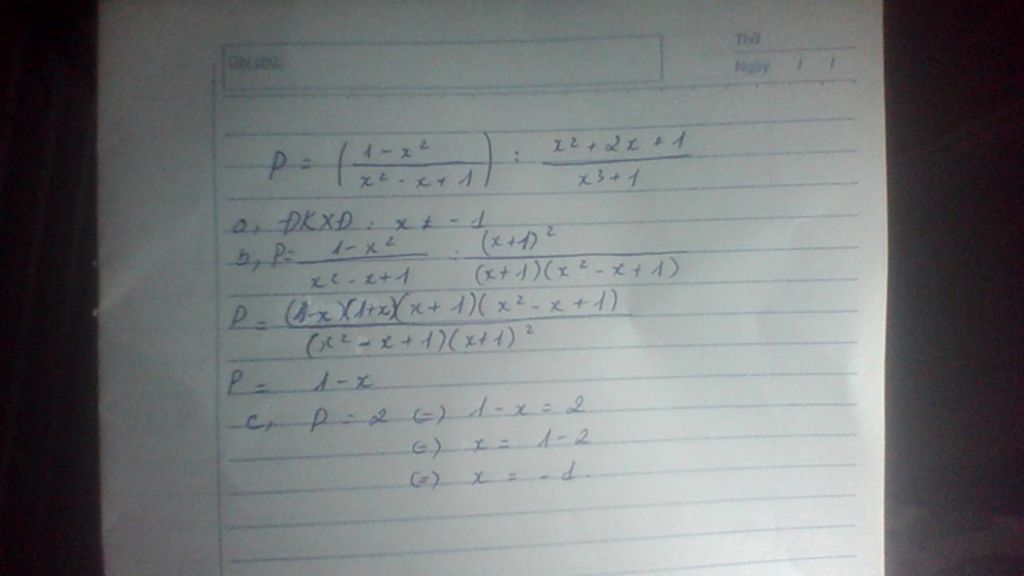 Thứ
Ghi chú:
Ngày / /
P = ( (1 - x²) / (x² - x + 1) ) : (x² + 2x + 1) / (x3 + 1)
a, ĐKXĐ : x ≠ - 1
b, P = (1 - x²) / (x² - x + 1) : (x+1)² / ((x+1)(x² - x + 1))
P = (1-x)(1+x)(x + 1)(x² - x + 1) / ((x² - x + 1)(x+1)²)
P = 1 - x
c, P = 2 (=) 1 - x = 2
(=) x = 1 - 2
(=) x = - 1.